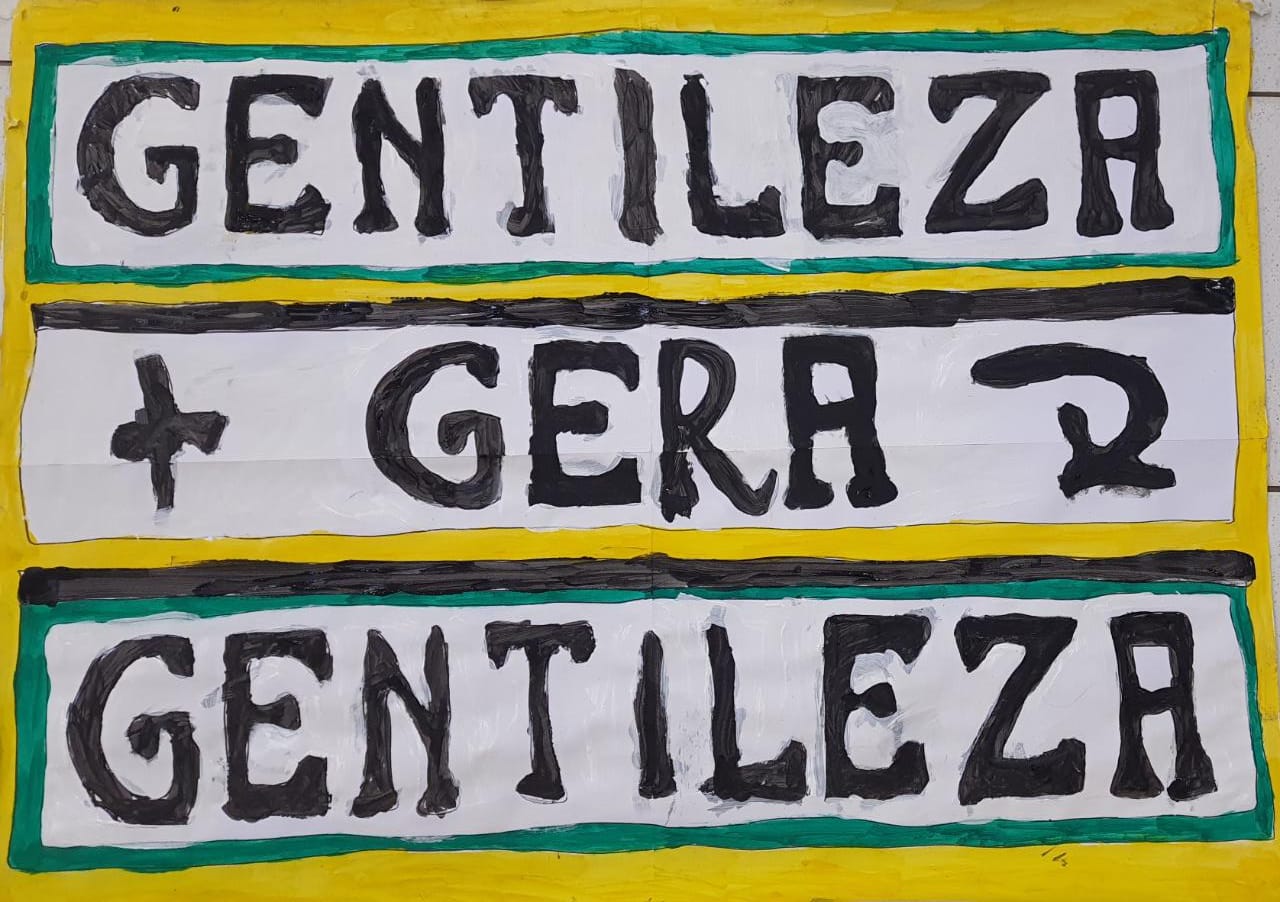 GENTILEZA
+ GERA
GENTILEZA